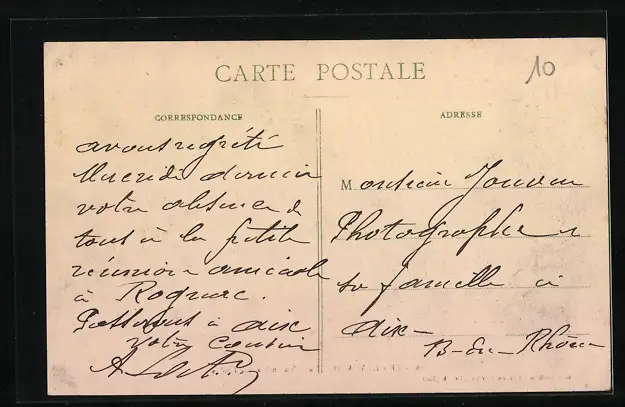 10
CARTE POSTALE
CORRESPONDANCE
avons regrété
Mercredi dernier
votre absence de
tous à la petite
réunion amicale
à Rognac.
à aix
votre cousin
ADRESSE
Monsieur Jouven
Photographe &
sa famille à
aix-
B-du-Rhône